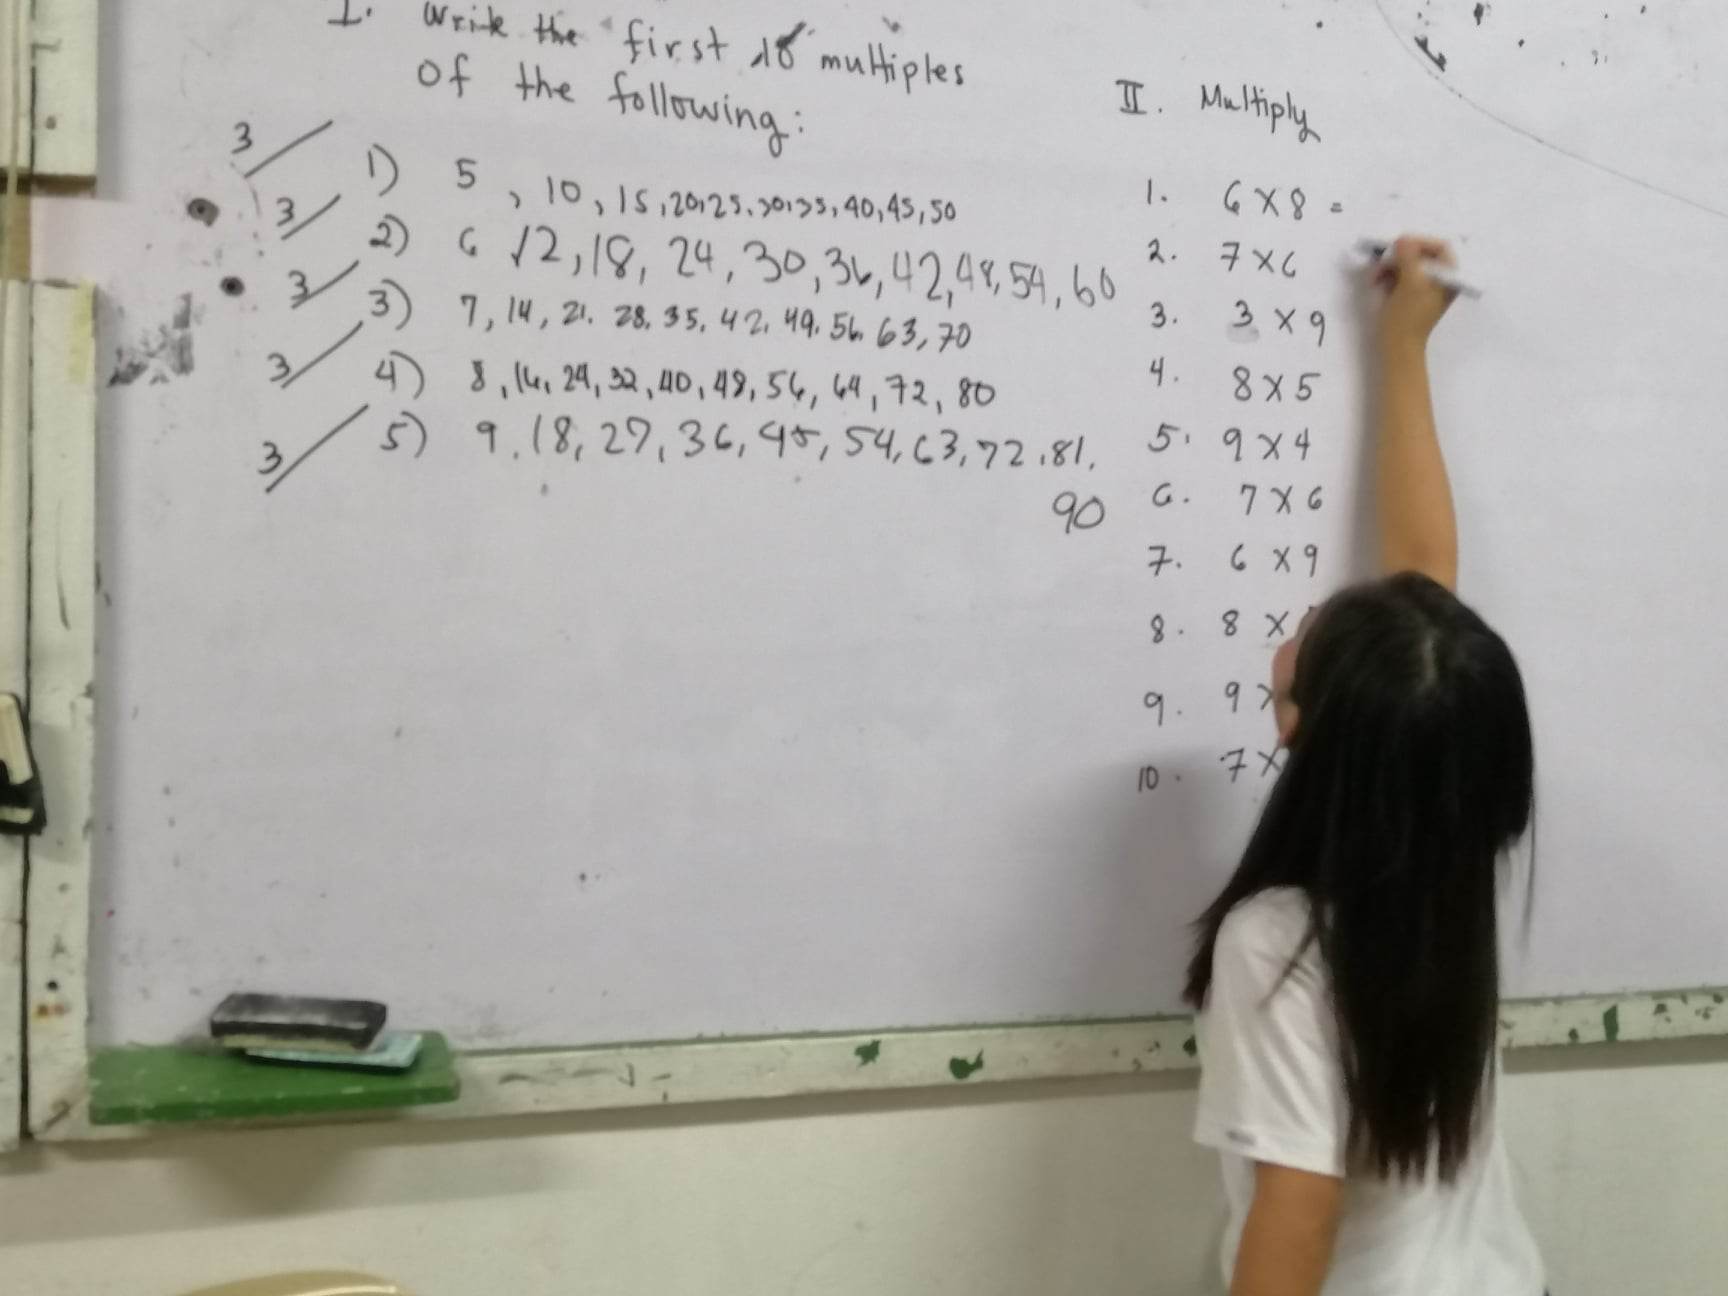 I. Write the first 10 multiples
of the following:
3 1) 5, 10, 15, 20, 25, 30, 35, 40, 45, 50
3 2) 6 12, 18, 24, 30, 36, 42, 48, 54, 60
3 3) 7, 14, 21. 28, 35, 42, 49. 56. 63, 70
3 4) 8, 16, 24, 32, 40, 48, 56, 64, 72, 80
3 5) 9. 18, 27, 36, 45, 54, 63, 72, 81.
90
II. Multiply
1. 6 x 8 =
2. 7 x 6
3. 3 x 9
4. 8 x 5
5. 9 x 4
6. 7 x 6
7. 6 x 9
8. 8 x
9. 9 x
10. 7 x